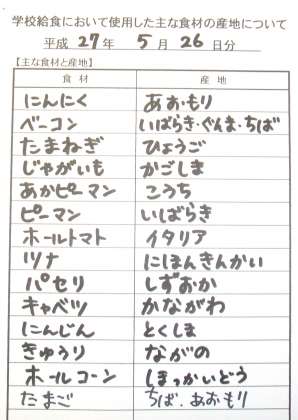 学校給食において使用した主な食材の産地について
平成 27年 5月 26日分
【主な食材と産地】
食材 産地
にんにく あおもり
ベーコン いばらき・ぐんま・ちば
たまねぎ ひょうご
じゃがいも かごしま
あかピーマン こうち
ピーマン いばらき
ホールトマト イタリア
ツナ にほんきんかい
パセリ しずおか
キャベツ かながわ
にんじん とくしま
きゅうり ながの
ホールコーン ほっかいどう
たまご ちば、あおもり